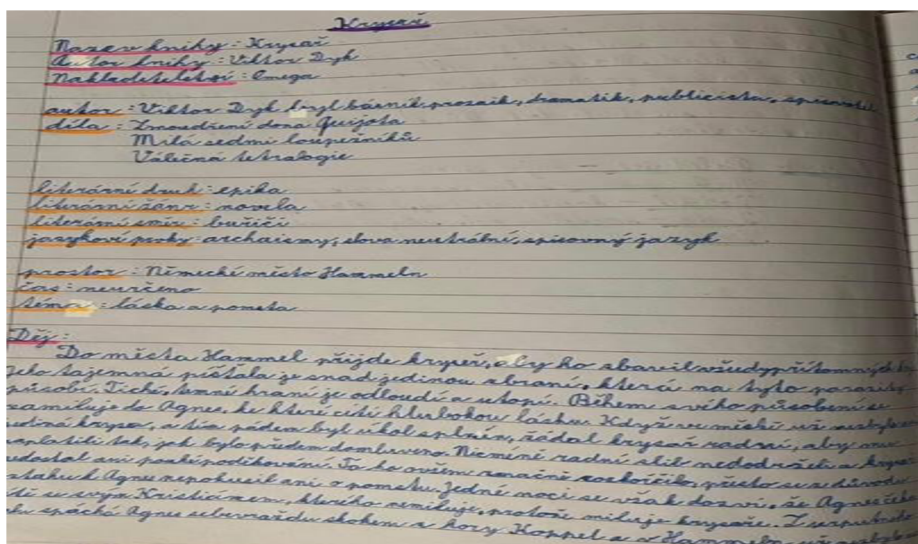 Krysař
Název knihy: Krysař
Autor knihy: Viktor Dyk
Nakladatelství: Omega
autor: Viktor Dyk byl básník, prozaik, dramatik, publicista, spisovatel
díla: Zmoudření dona Quijota
Milá sedmi loupežníků
Válečná tetralogie
literární druh: epika
literární žánr: novela
literární směr: buřiči
jazykové prvky: archaismy, slova neutrální, spisovný jazyk
prostor: Německé město Hammeln
čas: neurčeno
téma: láska a pomsta
Děj:
Do města Hammel přijde krysař, aby ho zbavil všudypřítomných
Jeho tajemná píšťala je snad jedinou zbraní, která na tyto parazity
působí. Tiché, temné hraní je odloudí a utopí. Během svého působení se
zamiluje do Agnes, ke které cítí hlubokou lásku. Když ve městě už nebyla
jediná krysa, a tím pádem byl úkol splněn, žádal krysař radní, aby mu
zaplatili tak, jak bylo předem domluveno. Nicméně radní slib nedodrželi a krysař
nedostal ani poděkování. To ho ovšem značně rozhořčilo, přesto se z důvodu
vztahu k Agnes nepokusil ani o pomstu. Jedné noci se však dozví, že Agnes čeká
dítě se svým Kristiánem, kterého nemiluje, protože miluje krysaře. Z
spáchá Agnes sebevraždu skokem z hory Koppel a v Hammeln už